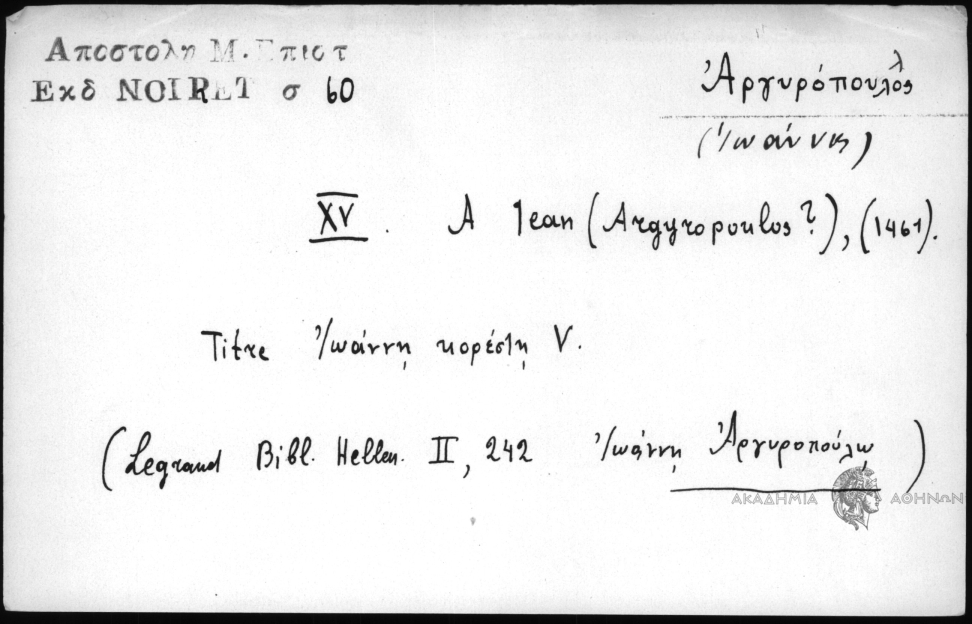 Αποστολη Μ. Επιστ
Εκδ NOIRET σ 60
Ἀργυρόπουλος
(Ἰωάννης)
XV. A Jean (Argyropoulos?), (1461).
Titre Ἰωάννῃ κορέστῃ V.
(Legrand Bibl. Hellen. II, 242 Ἰωάννῃ Ἀργυροπούλῳ)
ΑΚΑΔΗΜΙΑ ΑΘΗΝΩΝ